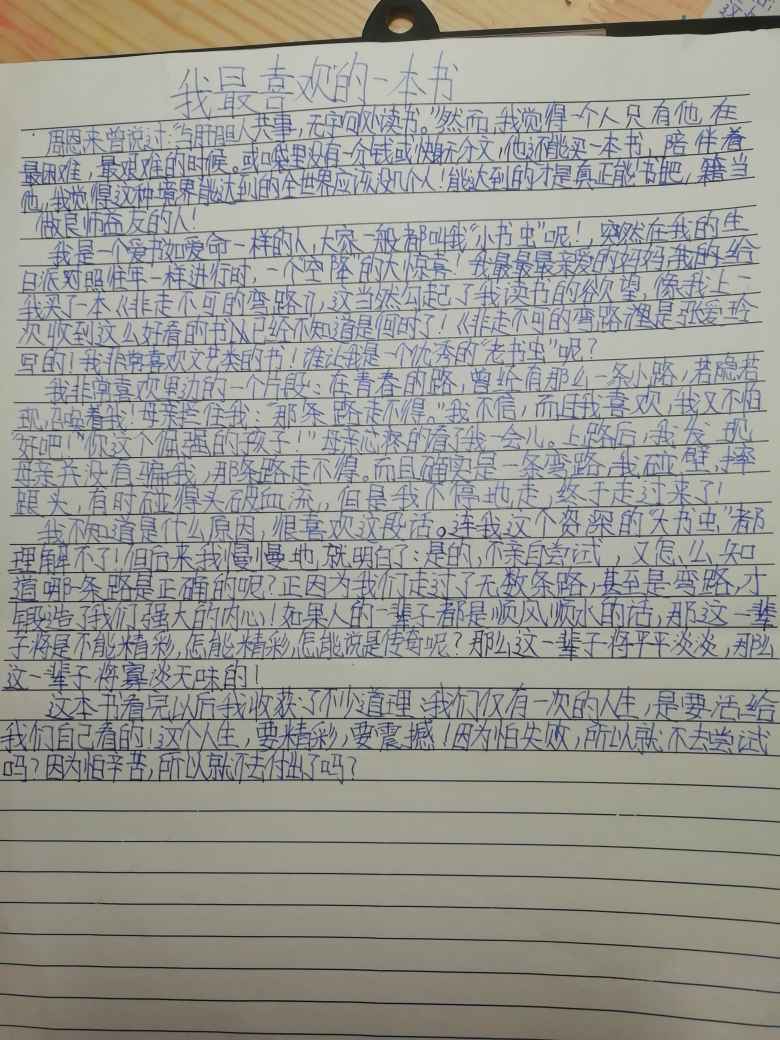 我最喜欢的一本书
周恩来曾说过:"与肝胆人共事,无字句处读书。"然而,我觉得一个人只有他,在
最困难,最艰难的时候。或口袋里没有一分钱或身无分文,他还能买一本书,陪伴着
他,我觉得这种境界能达到的全世界应该没几个人!能达到的才是真正能书吧,籍当
做良师益友的人!
我是一个爱书如爱命一样的人,大家一般都叫我"小书虫"呢!,突然在我的生
日派对照往年一样进行时,一个"空降"的大惊喜!我最最最亲爱的妈妈,我的给
我买了一本《非走不可的弯路》,这当然勾起了我读书的欲望,像我上一
次收到这么好看的书,已给不知道是何时了!《非走不可的弯路》是张爱玲
写的!我非常喜欢文艺类的书!谁让我是一个优秀的"老书虫"呢?
我非常喜欢里边的一个片段:在青春的路,曾经有那么一条小路,若隐若
现,召唤着我!母亲拦住我:"那条路走不得。"我不信,而且我喜欢,我又不怕
"好吧!""你这个倔强的孩子!"母亲心疼的看了我一会儿。上路后,我发现
母亲并没有骗我,那条路走不得。而且确实是一条弯路,我碰壁,摔
跟头,有时碰得头破血流,但是我不停地走,终于走过来了!
我不知道是什么原因,很喜欢这段话。连我这个资深的"大书虫"都
理解不了!但后来我慢慢地就明白了:是的,不亲自尝试,又怎么知
道哪一条路是正确的呢?正因为我们走过了无数条路,甚至是弯路,才
锻造了我们强大的内心!如果人的一辈子都是顺风顺水的话,那这一辈
子将是不能精彩,怎能精彩,怎能说是传奇呢?那么这一辈子将平平淡淡,那么
这一辈子将寡淡无味的!
这本书看完以后我收获了不少道理:我们仅有一次的人生,是要活给
我们自己看的!这个人生,要精彩,要震撼!因为怕失败,所以就不去尝试
吗?因为怕辛苦,所以就不去付出了吗?